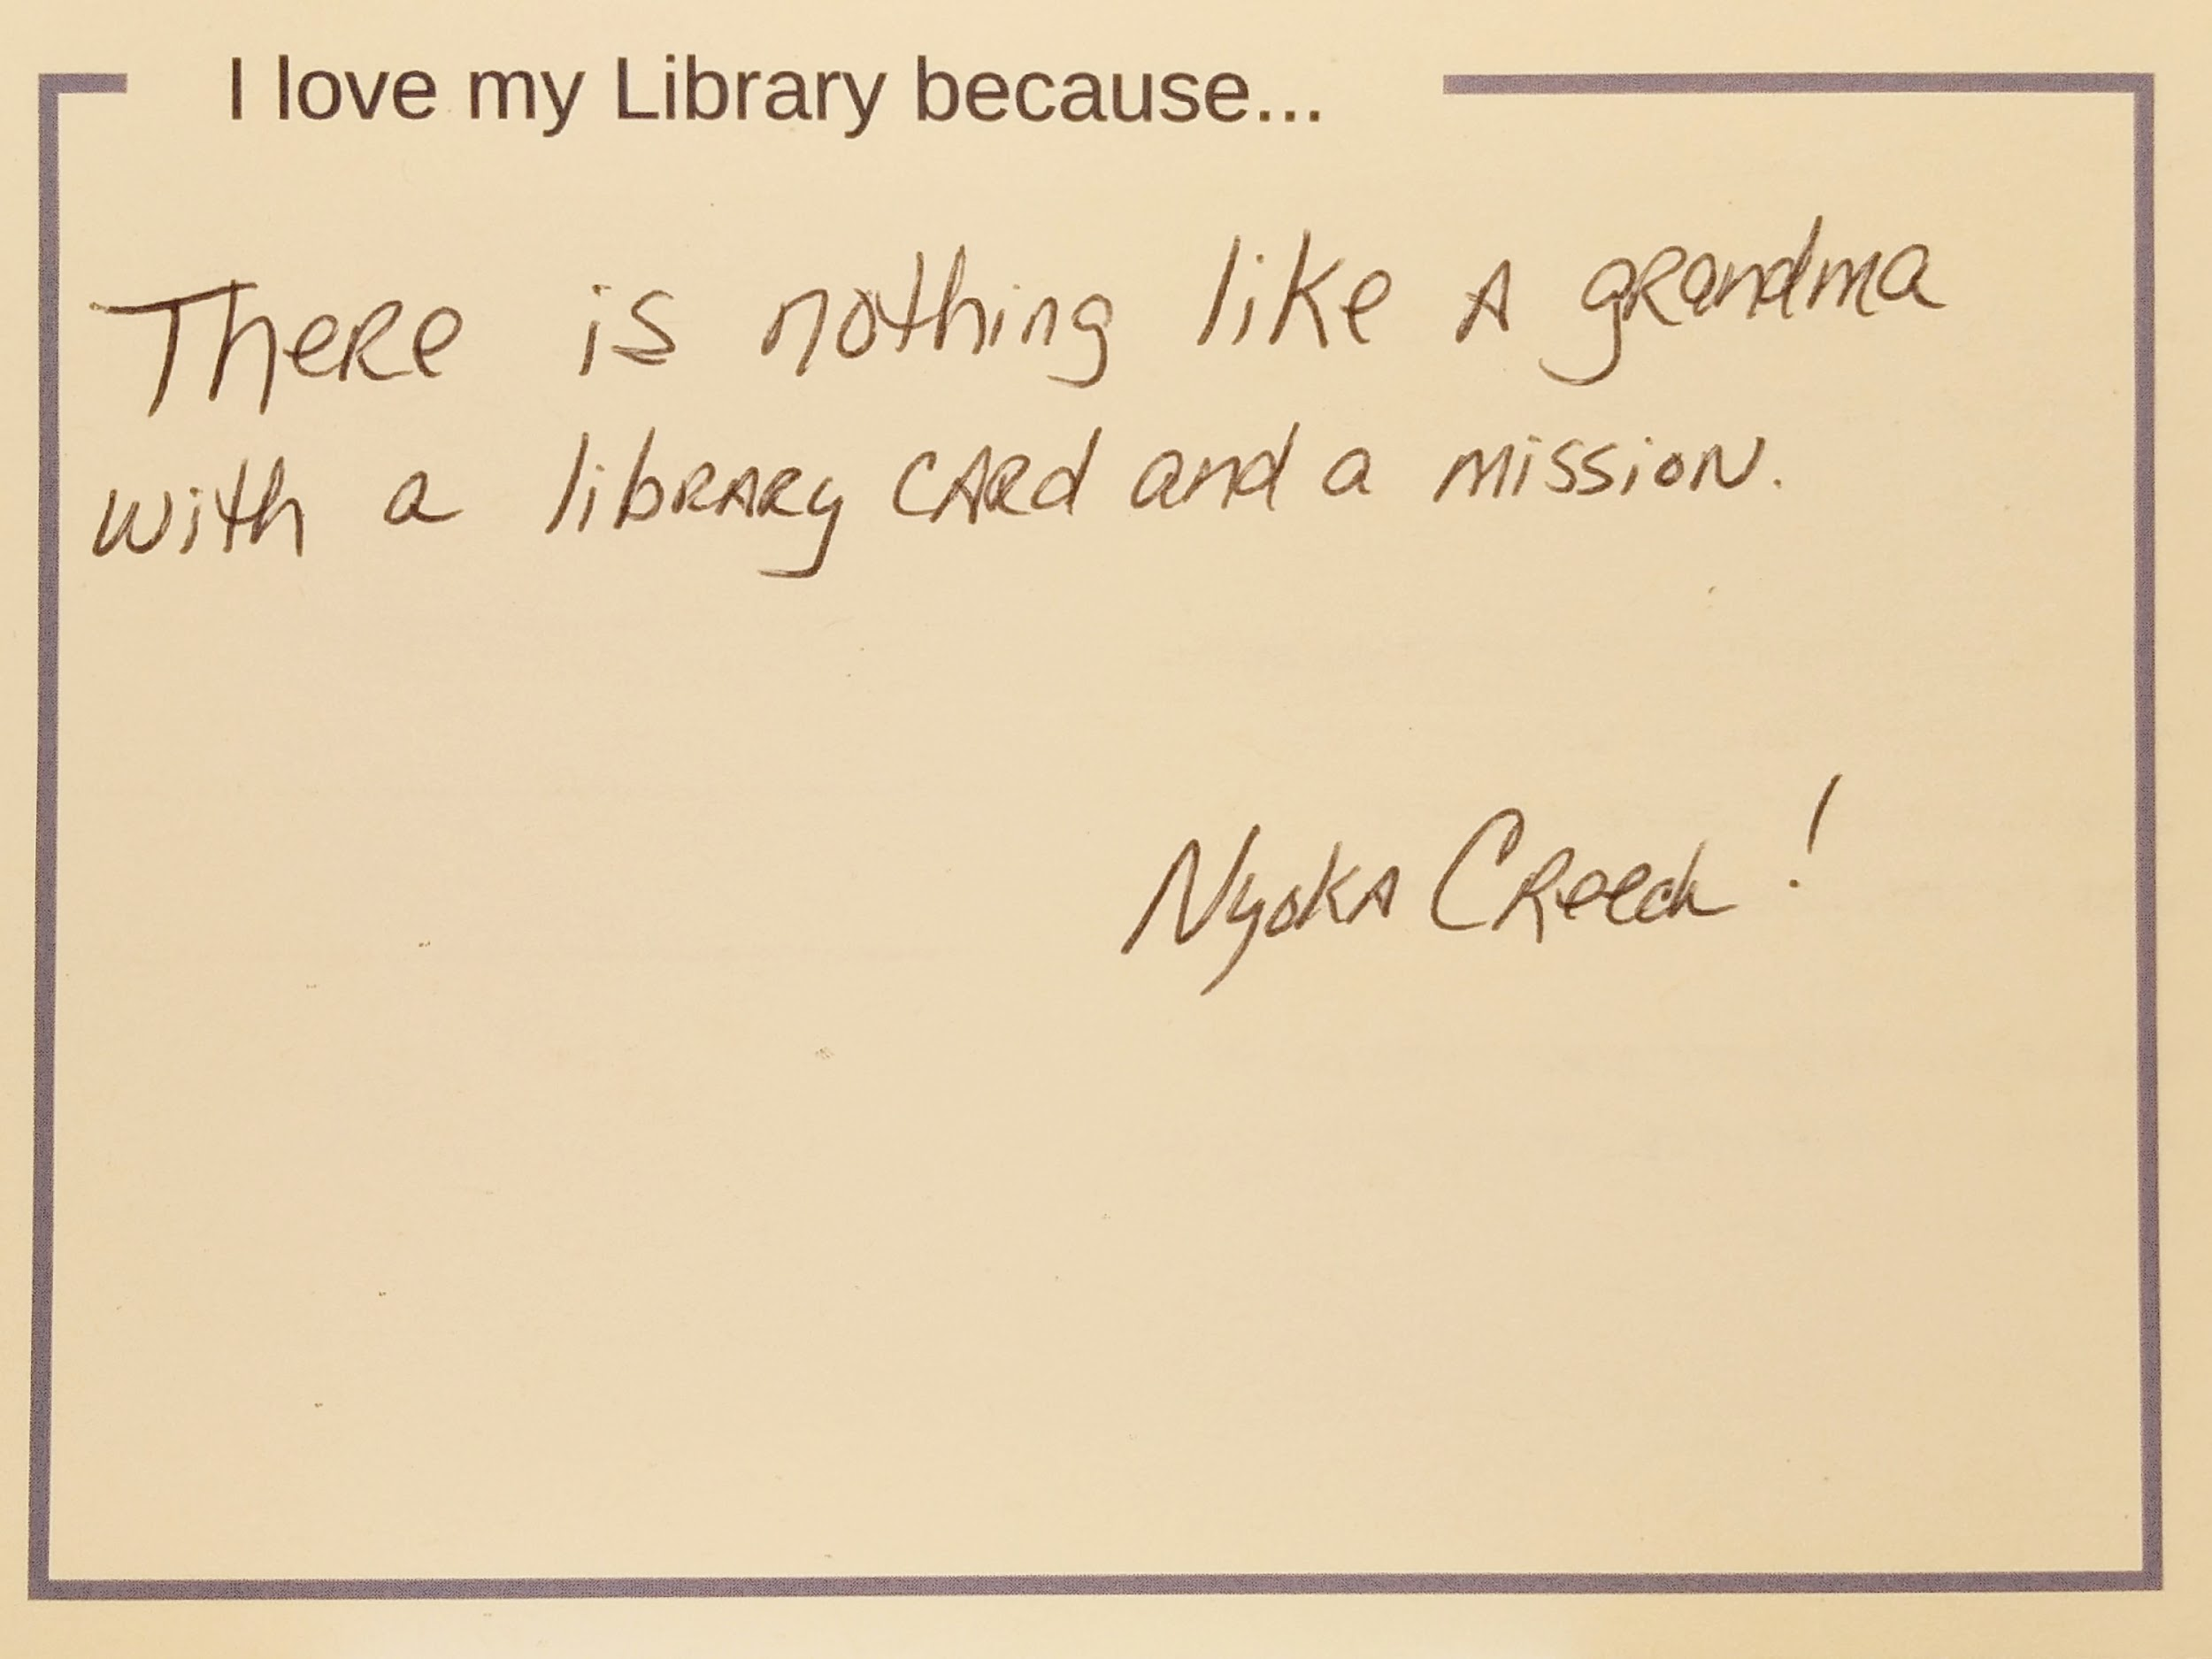 I love my Library because...
There is nothing like A grandma
with a library card and a mission.
Nyoka Creech!